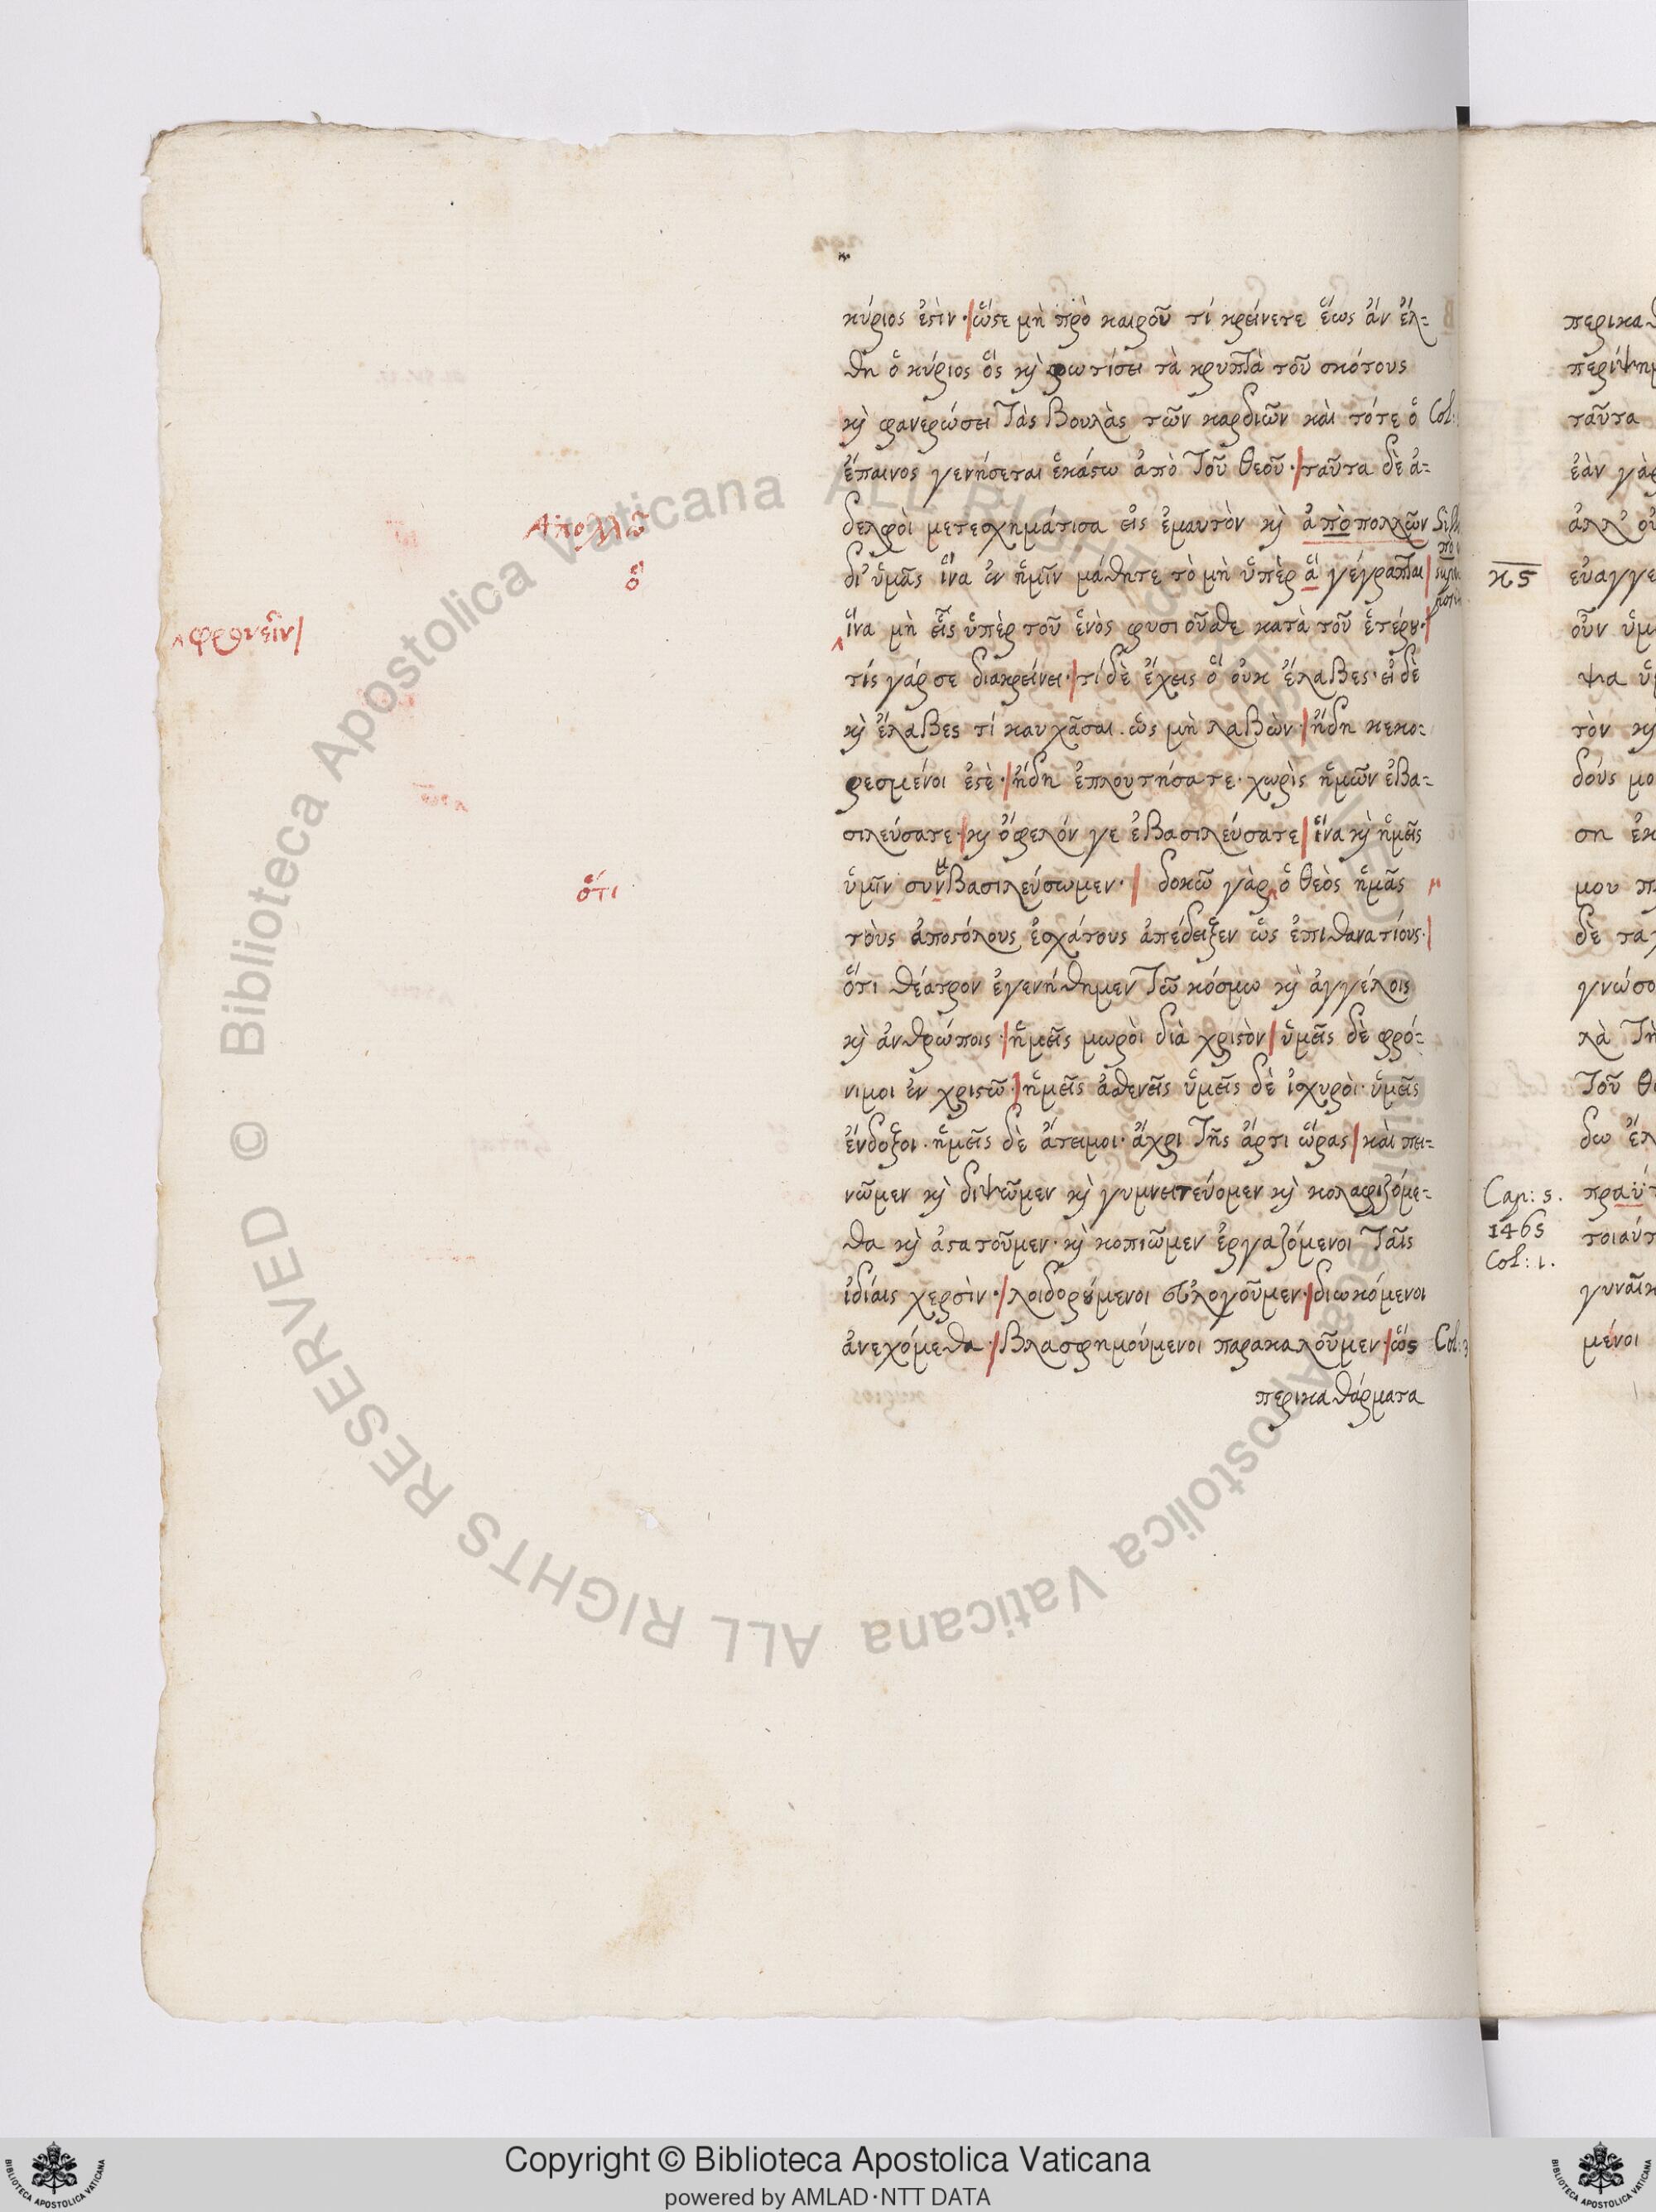 κύριος ἐϛὶν·/ὥϛε μὴ πρὸ καιροῦ τί κρείνετε ἕως ἀν ἔλ=
θη ὁ κύριος ὃς κ̀ φωτίσει τὰ κρυπτὰ τοῦ σκότους
κ̀ φανερώσει τὰς βουλὰς τῶν καρδιῶν καὶ τότε ὁ Col:
ἔπαινος γενήσεται ἑκάϛω ἀπὸ τοῦ θεοῦ·/ταῦτα δὲ ἀ=
Ἀπολλῶ
δελφὸι μετεσχημάτισα εἰς ἐμαυτὸν κ̀ ἀπὸπολλῶν
ὃ
δι' ὑμᾶς ἵνα ἐν ἡμῖν μάθητε τὸ μὴ ὑπὲρ ἃ γέγραπται/
^φρονεῖν/
ἵνα μὴ εἷς ὑπὲρ τοῦ ἑνὸς φυσιοῦσθε κατὰ τοῦ ἑτέρου·/
τίς γάρ σε διακρείνει·/τί δὲ ἔχεις ὃ οὐκ ἔλαβες·εἰ δὲ
κ̀ ἔλαβες τί καυχᾶσαι ὡς μὴ λαβὼν·/ἤδη κεκο=
ρεσμένοι ἐϛὲ·/ἤδη ἐπλουτήσατε·χωρὶς ἡμῶν ἐβα=
σιλεύσατε·/κ̀ ὄφελόν γε ἐβασιλεύσατε/ἵνα κ̀ ἡμεῖς
ὅτι
ὑμῖν συνβασιλεύσωμεν·/ δοκῶ γὰρ^ὁ θεὸς ἡμᾶς
τοὺς ἀποϛόλους ἐσχάτους ἀπέδειξεν ὡς ἐπιθανατίους·/
ὅτι θέατρον ἐγενήθημεν τῶ κόσμω κ̀ ἀγγέλοις
κ̀ ἀνθρώποις·/ἡμεῖς μωρὸι διὰ χριϛὸν/ὑμεῖς δὲ φρό=
νιμοι ἐν χριϛῶ·/ἡμεῖς ἀσθενεῖς ὑμεῖς δὲ ἰσχυρὸι·ὑμεῖς
ἔνδοξοι·ἡμεῖς δὲ ἄτειμοι·ἄχρι τῆς ἄρτι ὥρας/καὶ πει=
νῶμεν κ̀ διψῶμεν κ̀ γυμνειτεύομεν κ̀ κολαφιζόμε=
θα κ̀ ἀϛατοῦμεν·κ̀ κοπιῶμεν ἐργαζόμενοι ταῖς
ἰδίαις χερσὶν·/λοιδορούμενοι εὐλογοῦμεν·/διωκόμενοι
ἀνεχόμεθα·/βλασφημούμενοι παρακαλοῦμεν·/ὡς Col: 3
περικαθάρματα
περικαθ
περίψημ
ταῦτα
ἐὰν γὰρ
ἀλλ' οὐ
κ5
εὐαγγε
οὖν ὑμ
ψα ὑ
τὸν κ̀
δούς μο
ση ἐκ
μου π
δὲ τα
γνώσο
λὰ τὴ
τοῦ θ
δω ἔλ
Cap: 5.
πραΰτ
1465
τοιαύτ
Col: 1.
γυναῖκ
μένοι
© Biblioteca Apostolica Vaticana ALL RIGHTS RESERVED
Copyright © Biblioteca Apostolica Vaticana
powered by AMLAD·NTT DATA
BIBLIOTECA APOSTOLICA VATICANA
BIBLIOTECA APOSTOLICA VATICANA